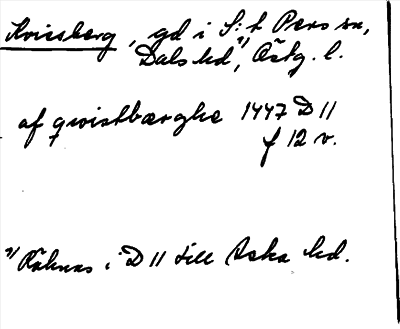 Kvissberg, gd i S:t Pers sn,
Dals hd¹⁾, Östg. l.
af qwistbærghe 1447 D 11
f 12 v.
¹⁾ Räknas i D 11 till Aska hd.